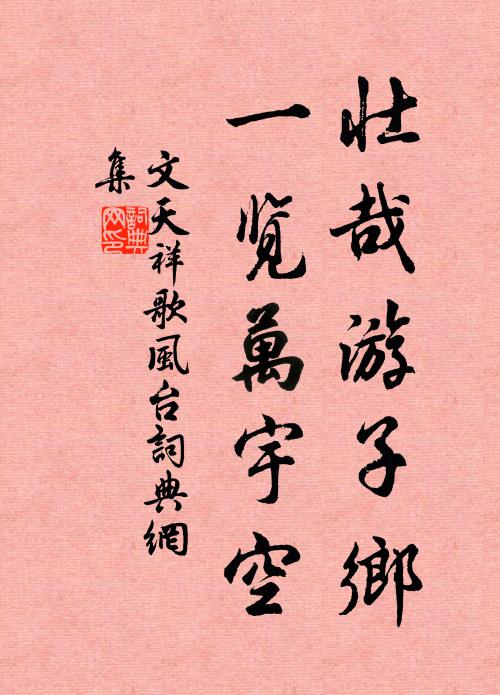 壮哉游子鄉
一览萬宇空
文天祥歌風台詞典網
集
詞典网印